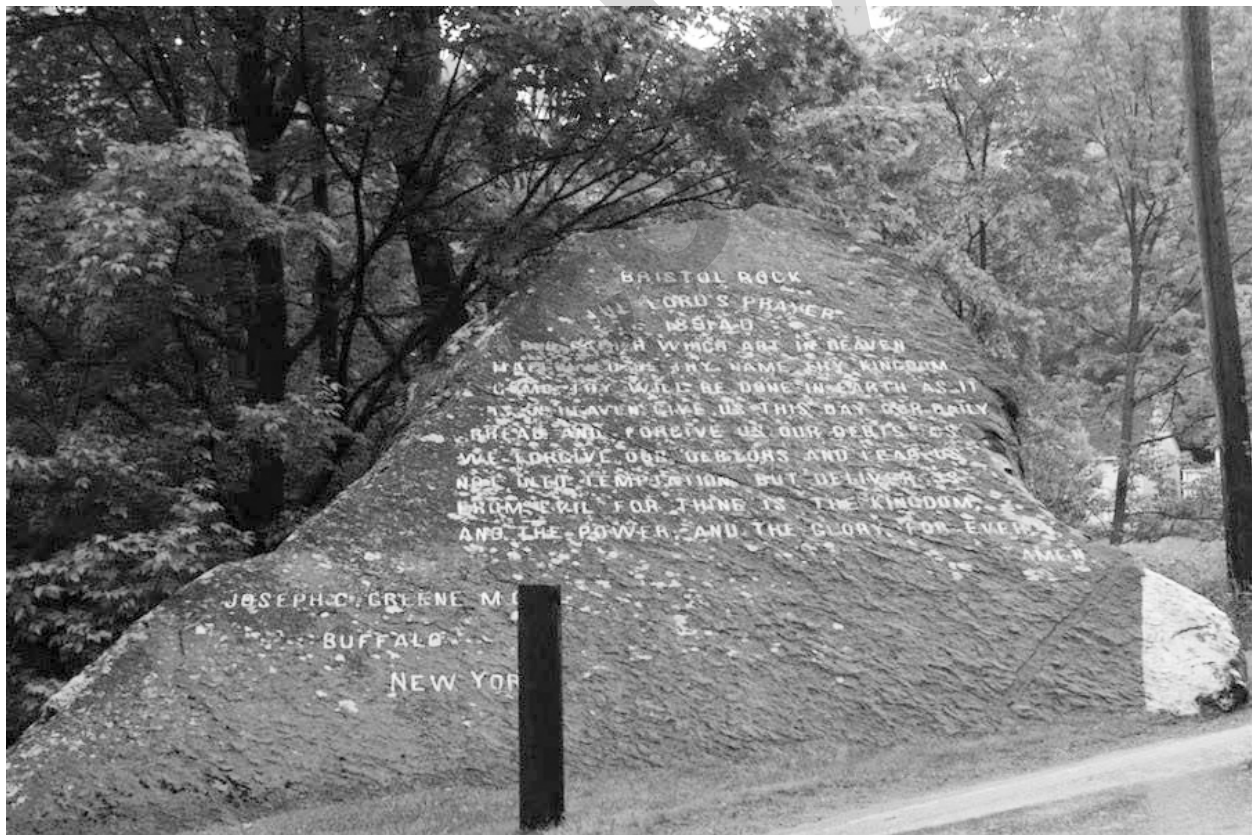 BRISTOL ROCK
LORD'S PRAYER
WHICH ART IN HEAVEN
THY NAME THY KINGDOM
COME THY WILL BE DONE IN EARTH AS IT
GIVE US THIS DAY OUR DAILY
BREAD AND FORGIVE US OUR DEBTS AS
WE FORGIVE OUR DEBTORS AND LEAD US
NOT INTO TEMPTATION BUT DELIVER
FROM EVIL FOR THINE IS THE KINGDOM,
AND THE POWER, AND THE GLORY, FOR EVER
AMEN
JOSEPH C. GREENE
BUFFALO
NEW